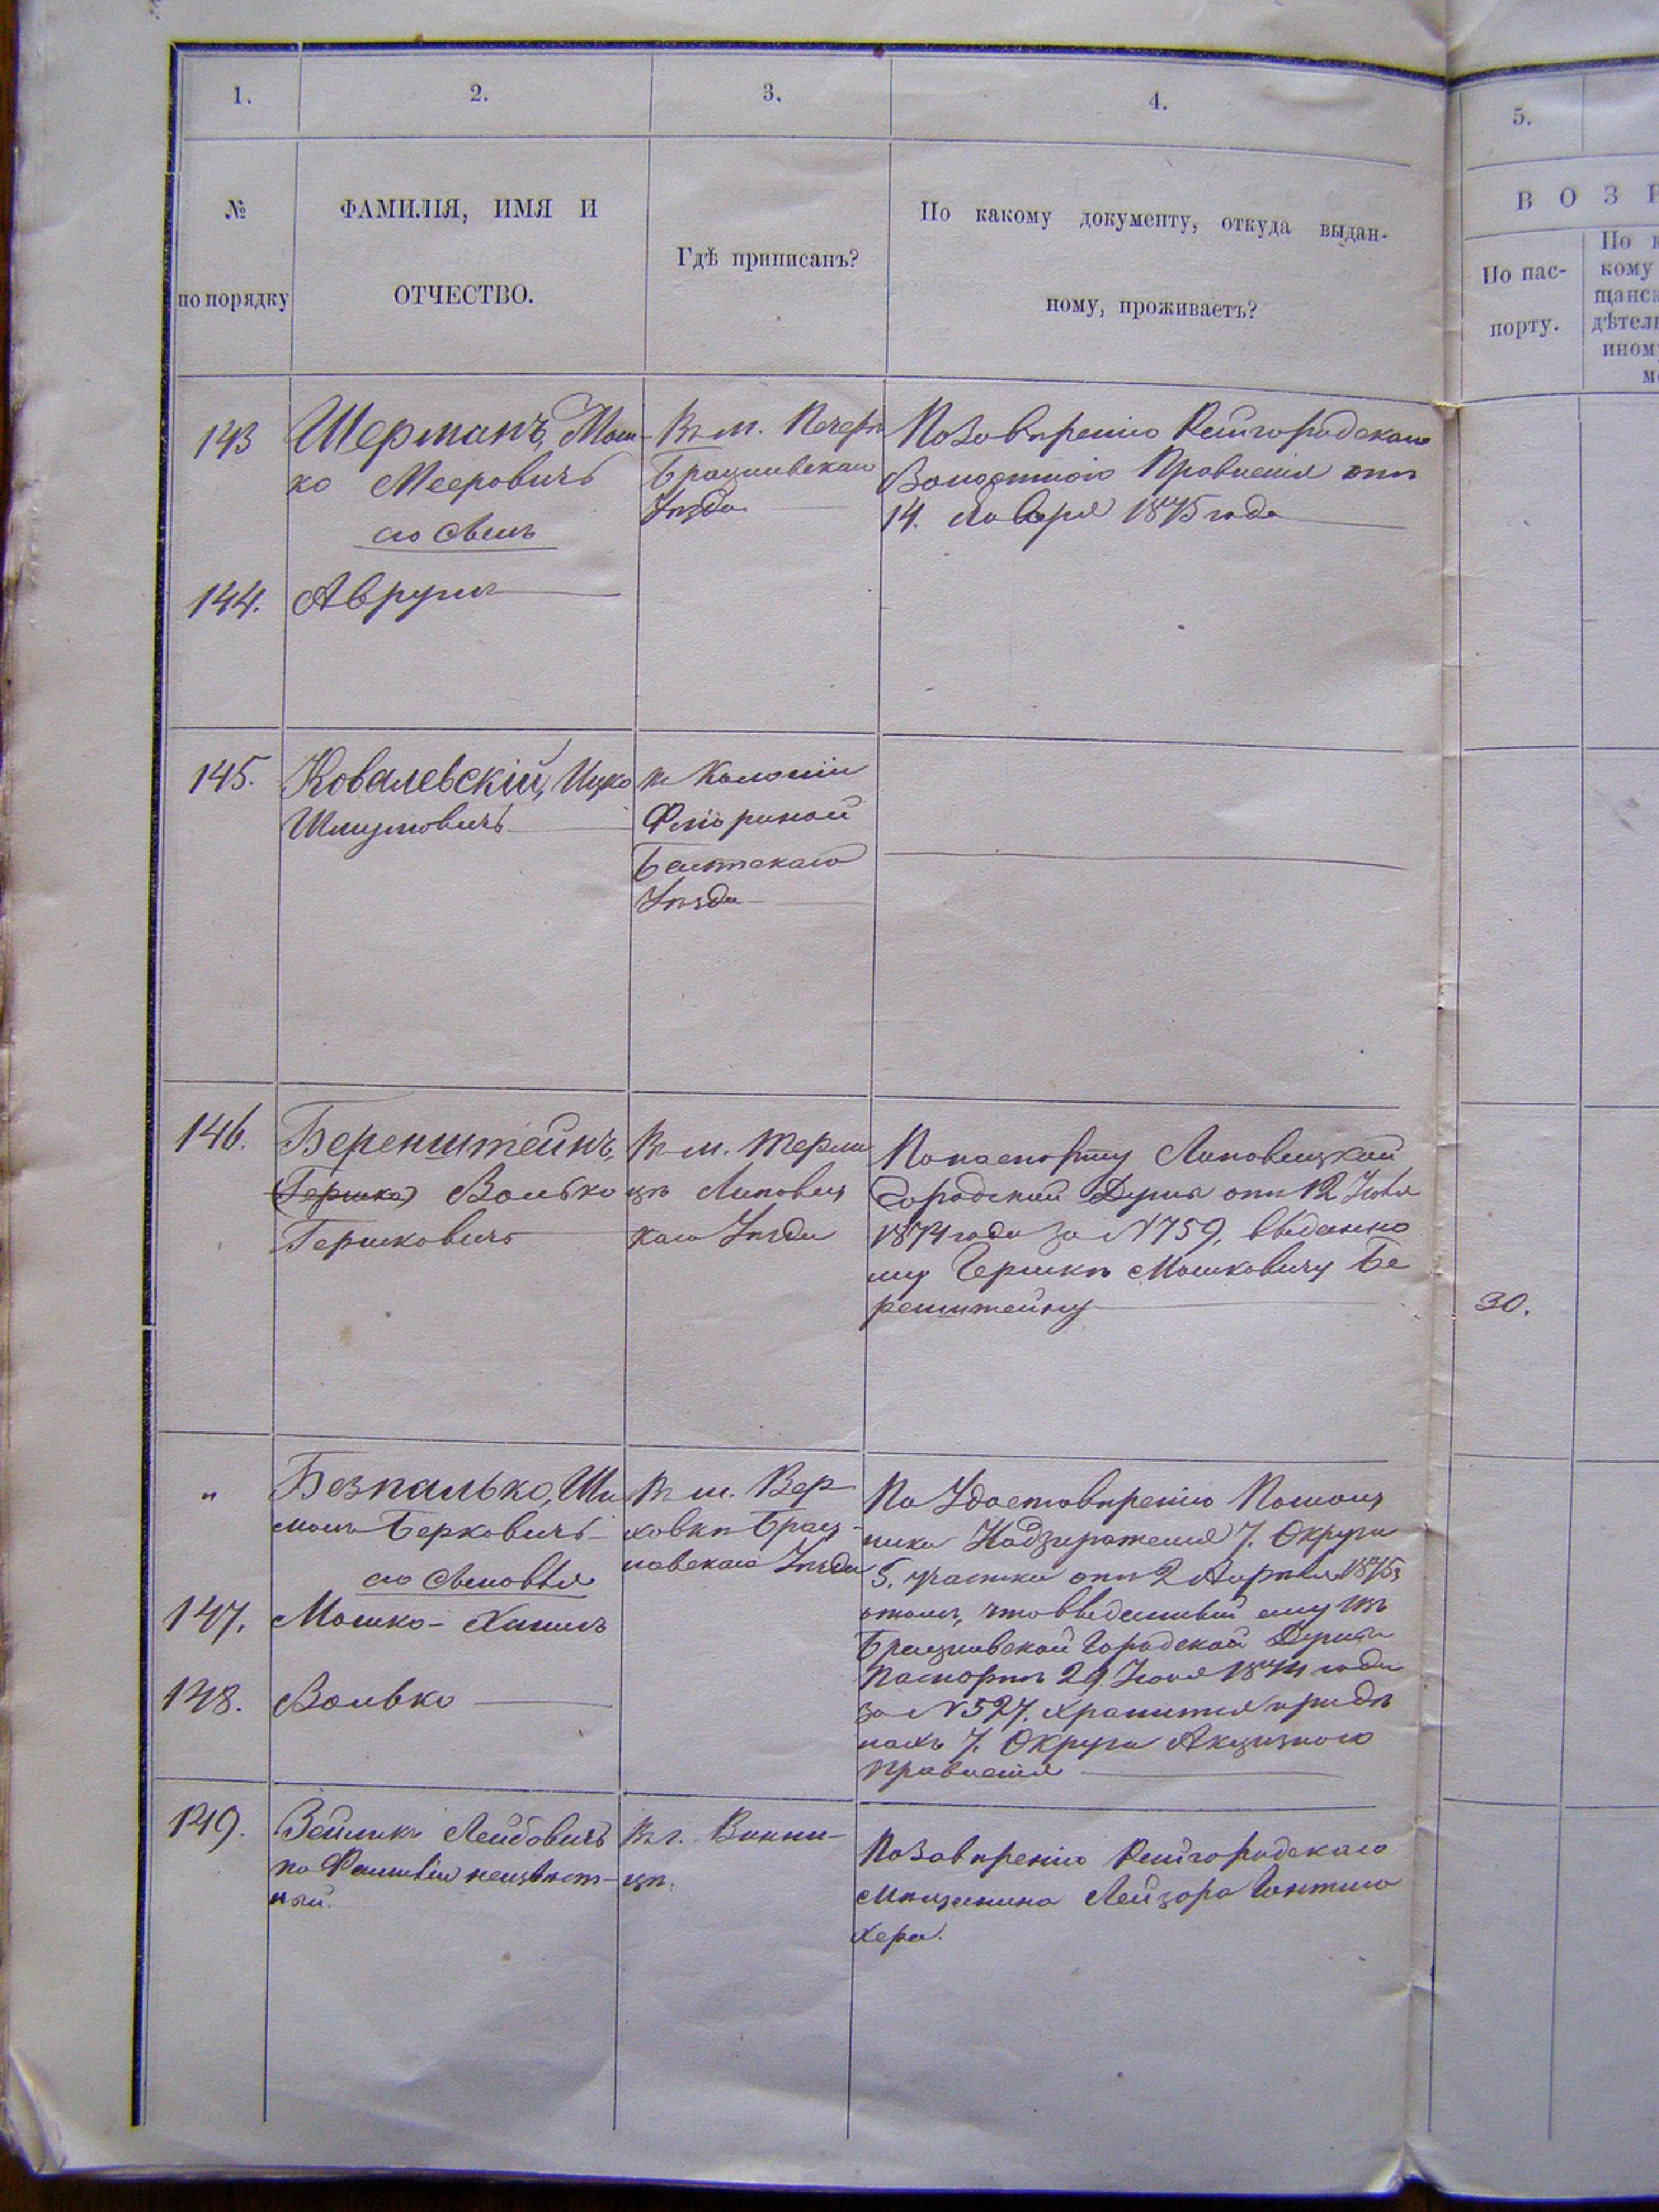 1.
2.
3.
4.
5.
№
по порядку
ФАМИЛІЯ, ИМЯ И
ОТЧЕСТВО.
Гдѣ приписанъ?
По какому документу, откуда выдан-
ному, проживаетъ?
В О З
По пас-
порту.
По
кому
щанск
дѣтел
ином
143
Шерманъ, Мош-
ко Мееровичъ
его сынъ
144. Аврумъ
Въ м. Печерѣ
Брацлавскаго
Уѣзда
По завѣренію Райгородскаго
Волостнаго Правленія отъ
14. Января 1875 года
145. Ковалевскій, Ицко
Шлиомовичъ
въ Колоніи
Флёриной
Балтскаго
Уѣзда
146. Беренштейнъ,
(Гершко) Волько
Гершковичъ
Въ м. Терли
цѣ Липовец
каго Уѣзда
По паспорту Липовецкой
Городской Думы отъ 12 Іюля
1874 года за № 759, выданно
му Гершкѣ Мошковичу Бе
ренштейну
30.
"
Безпалько, Ши
монъ Берковичъ
его сыновья
147. Мошко-Хаимъ
148. Волько
Въ м. Вер
ховкѣ Брац-
лавскаго Уѣзда
По Удостовѣренію Помощ
ника Надзирателя 7. Округа
5. участка отъ 2 Апрѣля 1875
о томъ, что выданный ему изъ
Брацлавской Городской Думы
Паспортъ 29 Іюня 1874 года
за № 527. хранится при дѣ
лахъ 7. Округа Акцизнаго
Правленія
149. Зейликъ Лейбовичъ
по Фамиліи неизвѣст-
ный.
Въ г. Винни-
цѣ.
По завѣренію Райгородскаго
Мѣщанина Лейзора
хера.